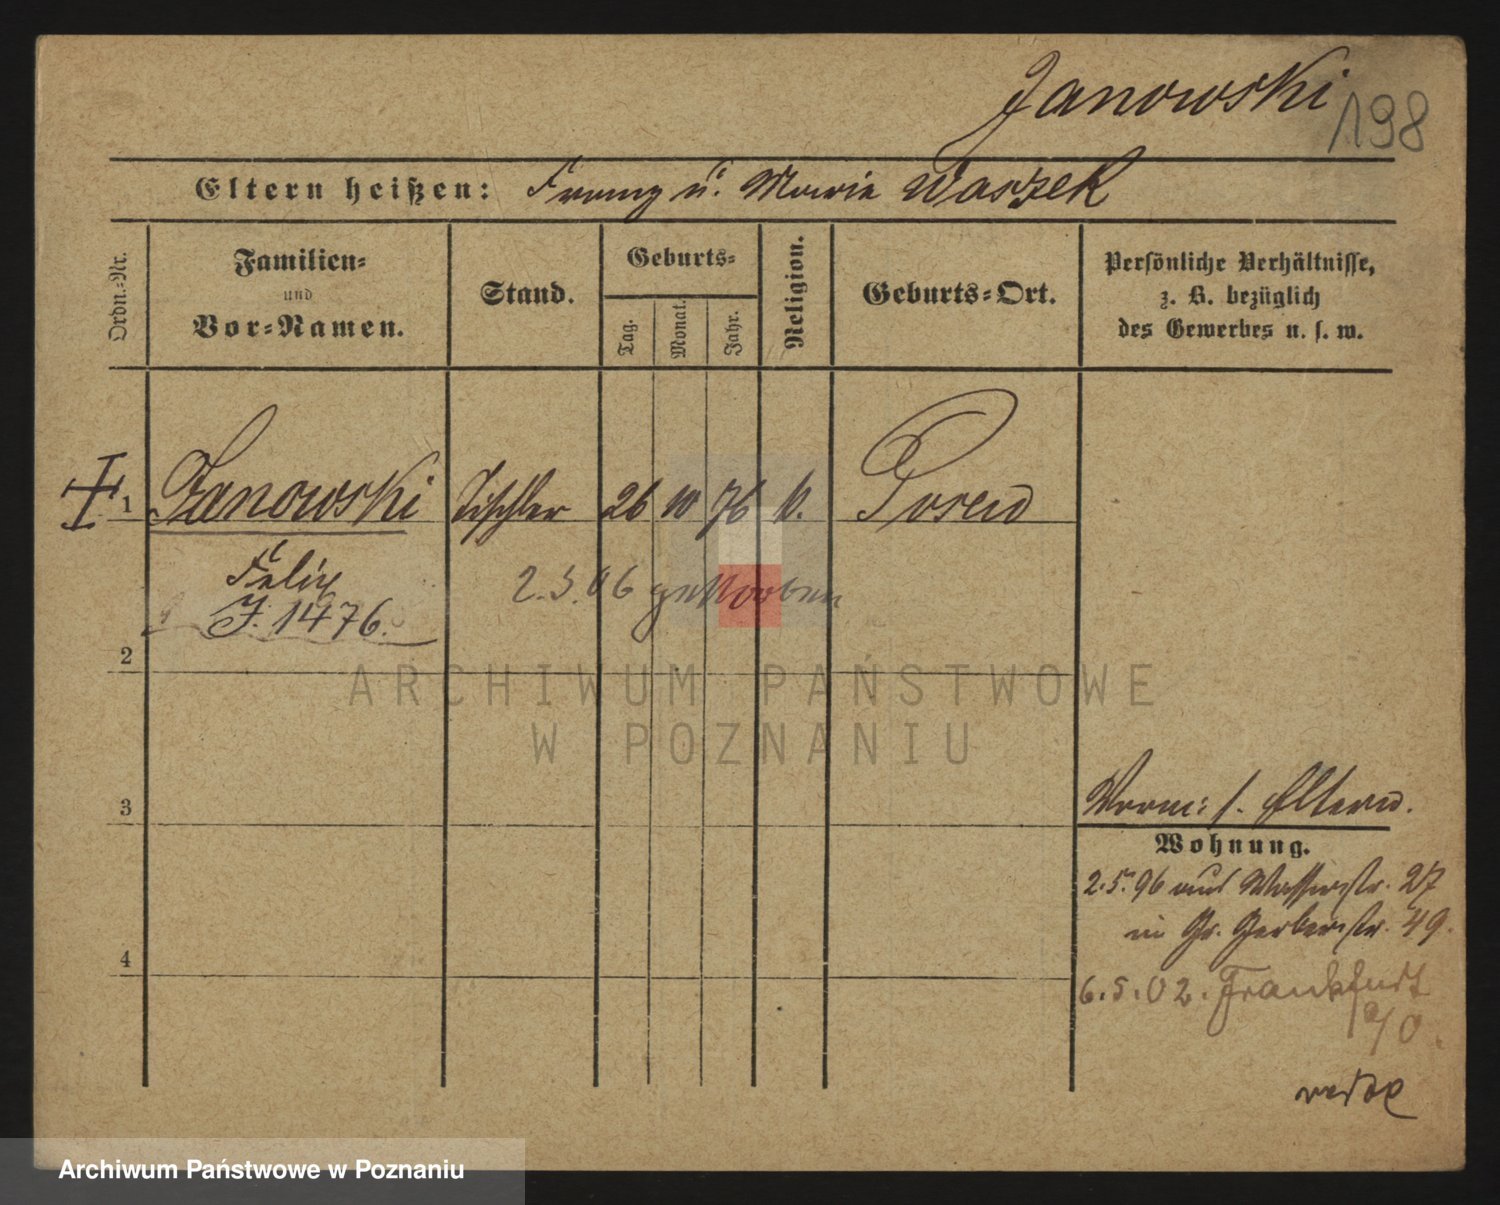 Janowski
198
Eltern heißen: Franz u. Marie Waszek
Ordn.-Nr.
Familien-
und
Vor-Namen.
Stand.
Geburts-
Tag.
Monat.
Jahr.
Religion.
Geburts-Ort.
Persönliche Verhältnisse,
z. B. bezüglich
des Gewerbes u. s. w.
1 Janowski Tischler 26 10 76 k. Posen
Felix
J. 1476.
2.5.06 gestorben
2
3
4
ARCHIWUM PAŃSTWOWE
W POZNANIU
Vorm: s. Eltern.
Wohnung.
2.5.96 aus Wasserstr. 27
in Gr. Gerberstr. 49.
6.5.02. Frankfurt
a/O.
Archiwum Państwowe w Poznaniu